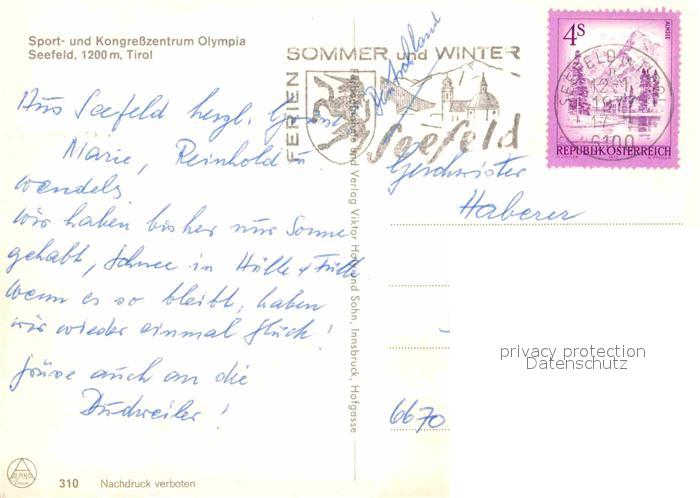 Sport- und Kongreßzentrum Olympia
Seefeld, 1200 m, Tirol
Aus Seefeld herzl. Grüsse
Marie, Reinhold u
Wendels
Wir haben bisher nur Sonne
gehabt, Schnee in Hülle + Fülle
Wenn es so bleibt, haben
wir wieder einmal Glück!
Grüsse auch an die
Dudweiler!
310 Nachdruck verboten
ALPINA
Druck
und Verlag Viktor
und Sohn, Innsbruck, Hofgasse
FERIEN
SOMMER und WINTER
Seefeld
Deutschland
4S
ALMSEE
REPUBLIK ÖSTERREICH
SEEFELD
6100
Geschwister
Haberer
6670
privacy protection
Datenschutz